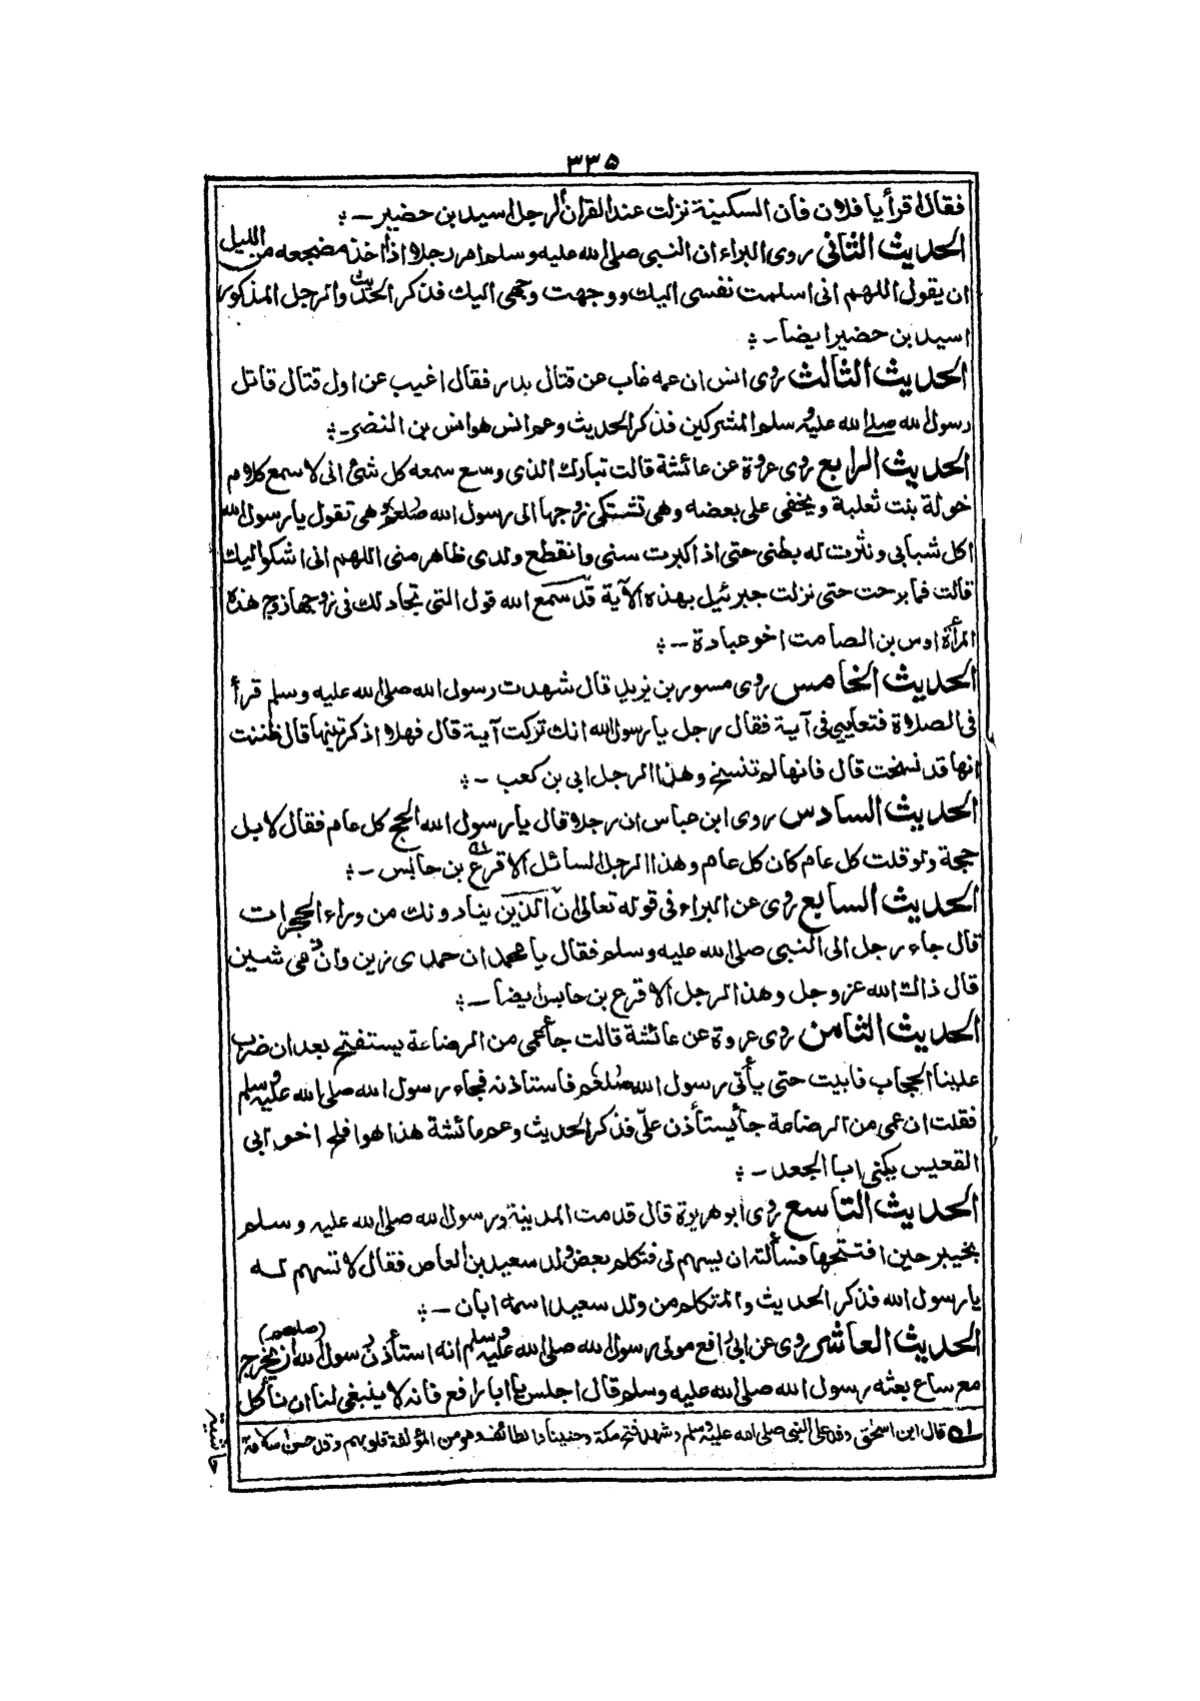 ٣٣٥
فقال اقرأ يا فلان فان السكينة نزلت عند القران الرجل اسيد بن حضير -
الحديث الثانى روى البراء ان النبى صلى الله عليه وسلم امر رجلا اذا اخذ مضجعه من الليل
ان يقول اللهم انى اسلمت نفسى اليك ووجهت وجهى اليك فذكر الحديث والرجل المذكور
اسيد بن حضير ايضا -
الحديث الثالث روى انس ان عمه غاب عن قتال بدر فقال اغيب عن اول قتال قاتل
رسول الله صلى الله عليه وسلم المشركين فذكر الحديث وعم انس هو انس بن النضر -
الحديث الرابع روى عروة عن عائشة قالت تبارك الذى وسع سمعه كل شئ انى لاسمع كلام
خولة بنت ثعلبة ويخفى على بعضه وهى تشتكى زوجها الى رسول الله صلعم وهى تقول يا رسول الله
اكل شبابى ونثرت له بطنى حتى اذ اكبرت سنى وانقطع ولدى ظاهر منى اللهم انى اشكو اليك
قالت فما برحت حتى نزلت جبرئيل بهذه الآية قد سمع الله قول التى تجادلك فى زوجها زوج هذه
المرأة اوس بن الصامت اخو عبادة -
الحديث الخامس روى مسور بن يزيد قال شهدت رسول الله صلى الله عليه وسلم قرأ
فى الصلاة فتعايى فى آية فقال رجل يا رسول الله انك تركت آية قال فهلا اذكرتنيها قال ظننت
انها قد نسخت قال فانها لم تنسخ وهذا الرجل ابى بن كعب -
الحديث السادس روى ابن عباس ان رجلا قال يا رسول الله الحج كل عام فقال لا بل
حجة ولو قلت كل عام كان كل عام وهذا الرجل السائل الاقرع بن حابس -
الحديث السابع روى عن البراء فى قوله تعالى ان الذين ينادونك من وراء الحجرات
قال جاء رجل الى النبى صلى الله عليه وسلم فقال يا محمد ان حمدى زين وان ذمى شين
قال ذاك الله عز وجل وهذا الرجل الاقرع بن حابس ايضا -
الحديث الثامن روى عروة عن عائشة قالت جأ عمى من الرضاعة يستفتح بعد ان ضرب
علينا الحجاب فابيت حتى يأتى رسول الله صلعم فاستاذنه فجاء رسول الله صلى الله عليه وسلم
فقلت ان عمى من الرضاعة جأ يستأذن علىّ فذكر الحديث وعم عائشة هذا هو افلح اخو ابى
القعيس يكنى ابا الجعد -
الحديث التاسع روى ابو هريرة قال قدمت المدينة ورسول الله صلى الله عليه وسلم
بخيبر حين افتتحها فسألته ان يسهم لى فتكلم بعض ولد سعيد بن العاص فقال لا تسهم له
يا رسول الله فذكر الحديث والمتكلم من ولد سعيد اسمه ابان -
الحديث العاشر روى عن ابى رافع مولى رسول الله صلى الله عليه وسلم انه استأذن رسول الله (صلعم) ان يخرج
مع ساع بعثه رسول الله صلى الله عليه وسلم قال اجلس يا ابا رافع فانه لا ينبغى لنا ان نأكل
له قال ابن اسحٰق وفد على النبى صلى الله عليه وسلم وشهد فتح مكة وحنينا والطائف وهو من المؤلفة قلوبهم وقد حسن اسلامه
حاشية